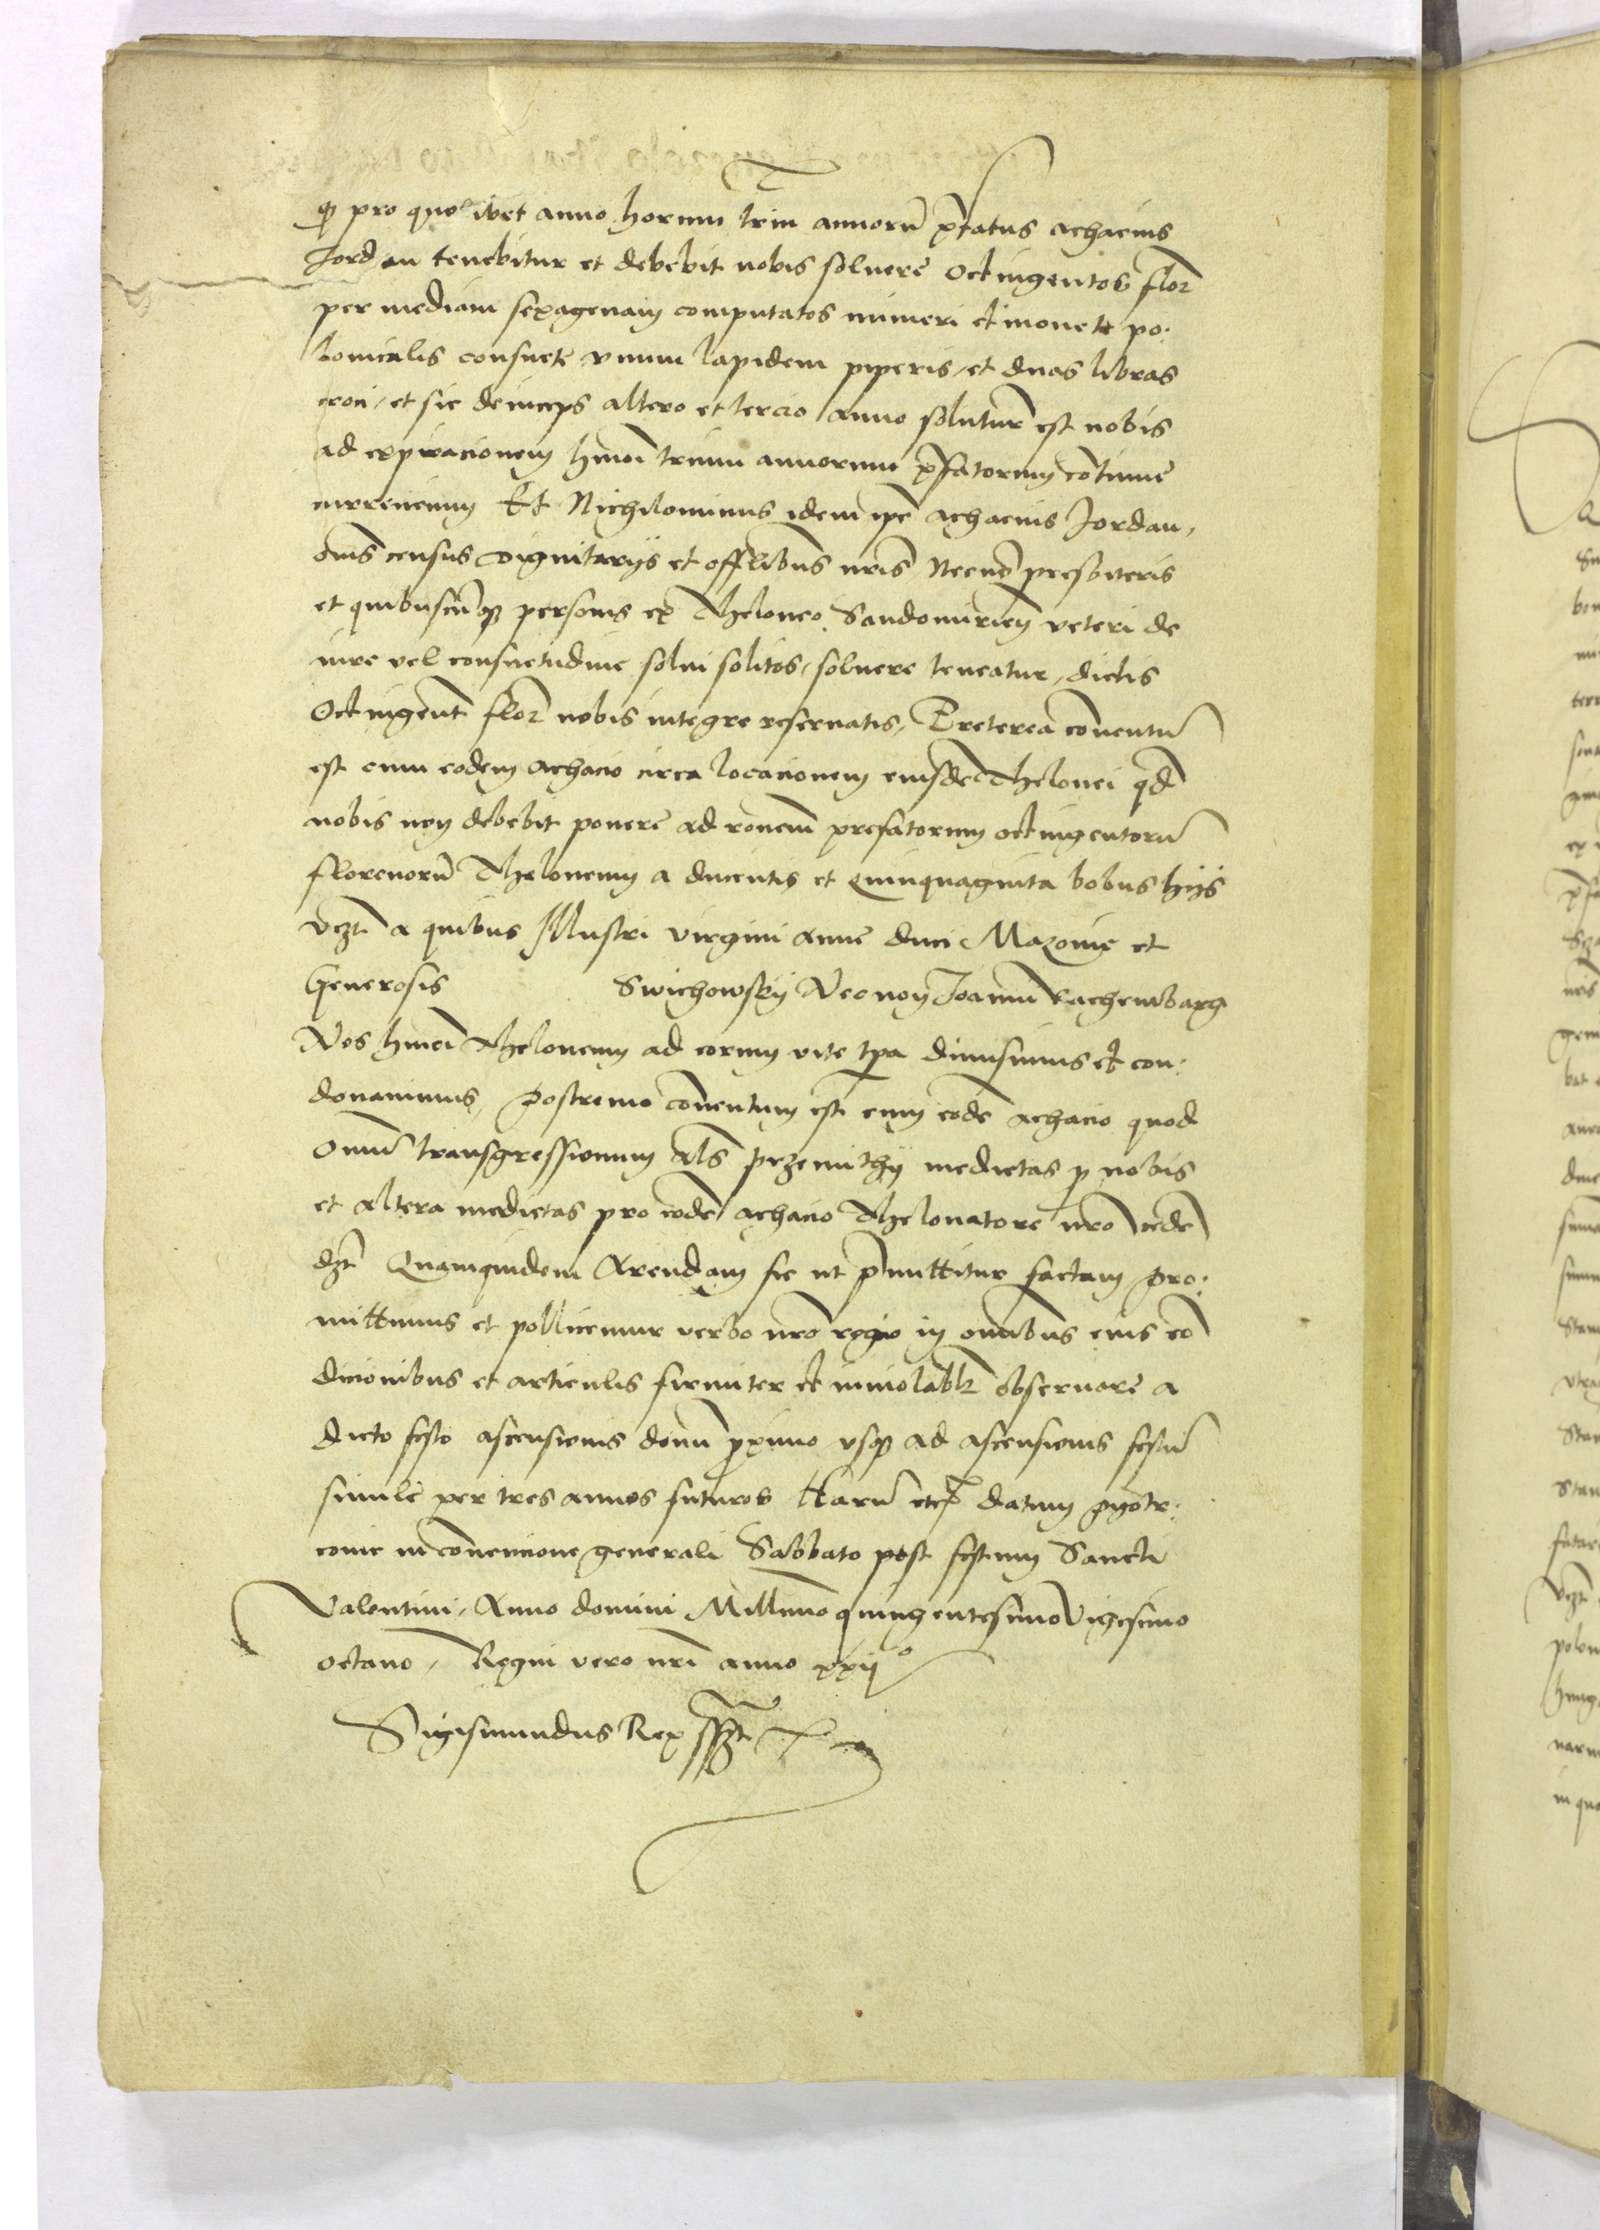 q pro quolibet anno horum trium annorū p̄fatus achacius
Jordan tenebitur et debebit nobis soluere Octingentos flor
per mediam sexagenam computatos numeri et monete po:
lonicalis consuete vnum lapidem piperis, et duas libras
croci, et sic deinceps altero et tercio anno soluturꝰ est nobis
ad expiracionem hmoi trium annorum p̄fatorum continue
currencium Et Nichilominus idem ipe achacius Jordan,
oms census Dignitarijs et offlibus nris Necnō presbiteris
et quibuscūqꝫ personis ex Theloneo Sandomirien veteri de
iure vel consuetudine solui solitos, soluere teneatur, dictis
Octingent flor nobis integre reseruatis, Preterea conuentū
est cum eodem achacio circa locacionem eiusdē Thelonei qd
nobis non debebit ponere ad ronem prefatorum octingentorū
florenorū Theloneum a ducentis et Quinquaginta bobus hijs
vczt a quibus Illustri virgini anne duci Mazouie et
Generosis Swichowskij Necnon Joanni Rachembarg
Nos hmoi Theloneum ad eorum vite tpa dimisimus et con:
donauimus, Postremo conuentum est cum eodē achacio quod
omniū transgressionum als przemithij medietas p nobis
et altera medietas pro eodē achacio Thelonatore nro cedē
dzt Quamquidem Arendam sic ut p̄mittitur factam pro:
mittimus et pollicemur verbo nro regio in omnibus eius cō
dicionibus et articulis firmiter et inuiolablr obseruare a
dicto festo ascensionis domī proximo vsqꝫ ad ascensionis festū
simile per tres annos futuros Harū etc datum pyotr:
couie in conuencione generali Sabbato post festum Sancti
Valentini, Anno domini Millimo quingentesimo Vigesimo
octauo, Regni vero nri anno xxijº
Sigismundus Rex sszt